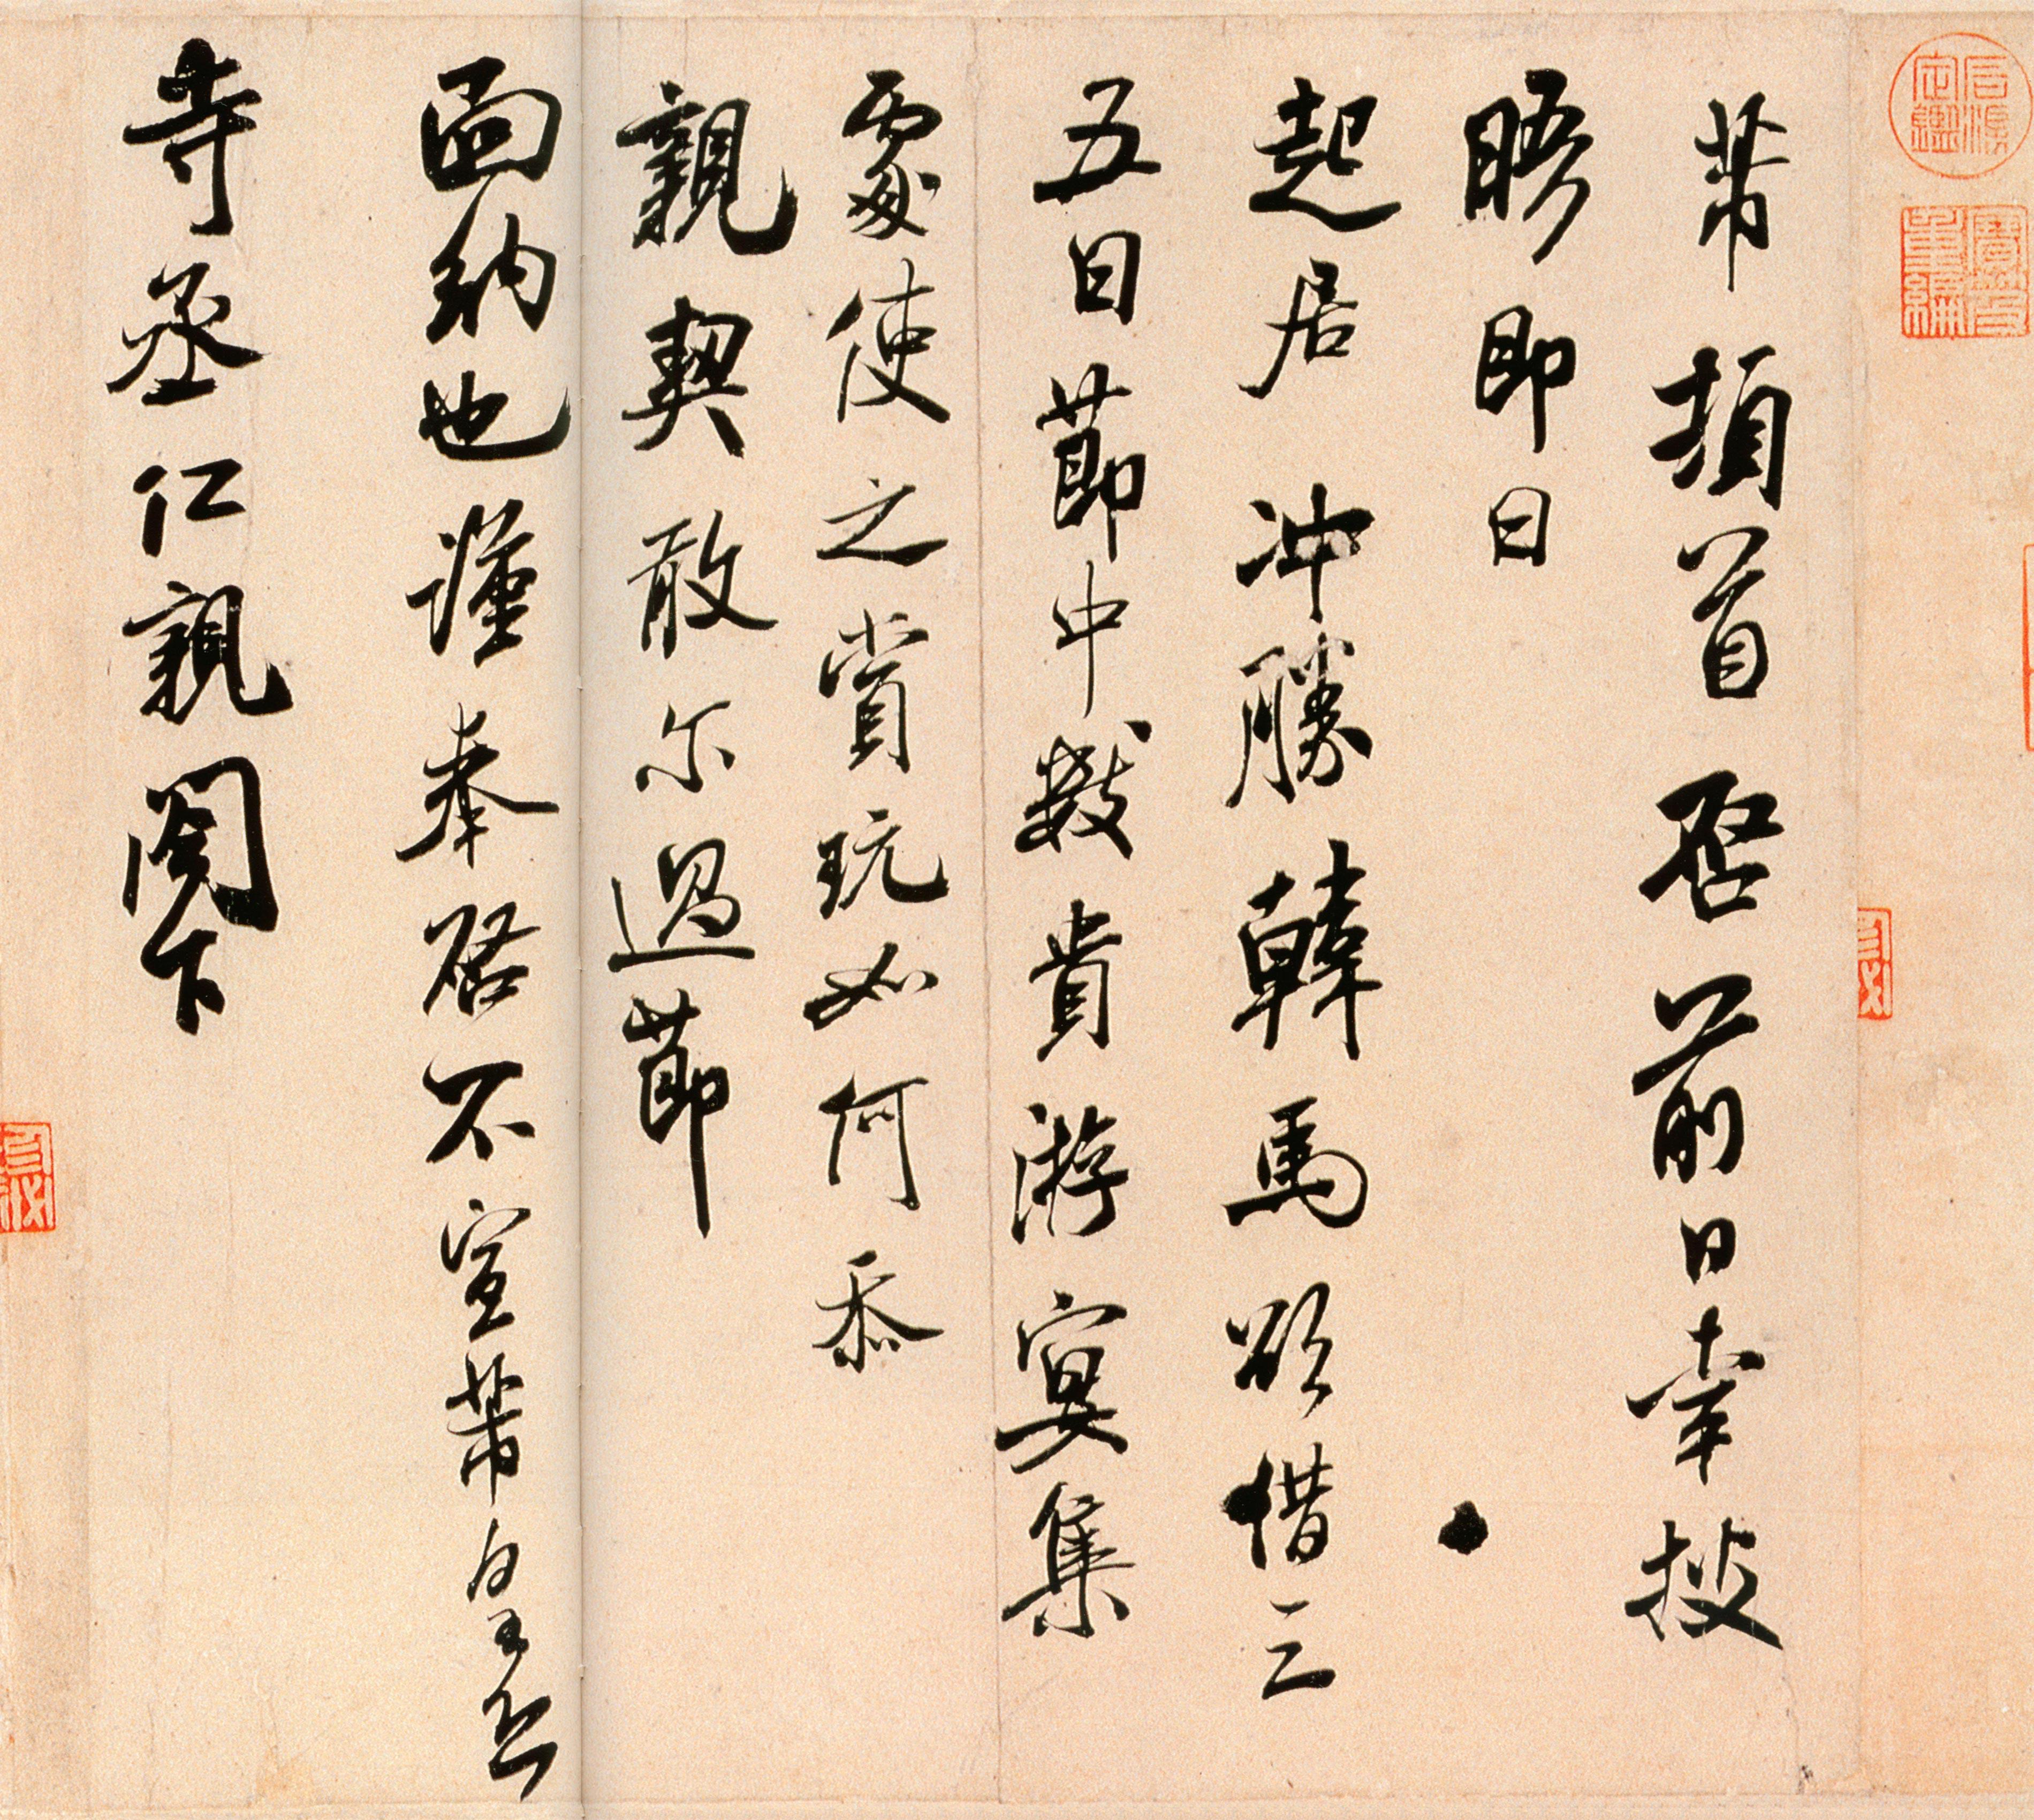 石渠定鑑
寶笈重編
芾頓首启前日幸披
晤即日
起居冲勝韓馬欲借三
五日節中數貴游宴集
處使之賞玩如何忝
親契敢尔過節
面納也謹奉啓不宣芾皇恐
寺丞仁親閤下